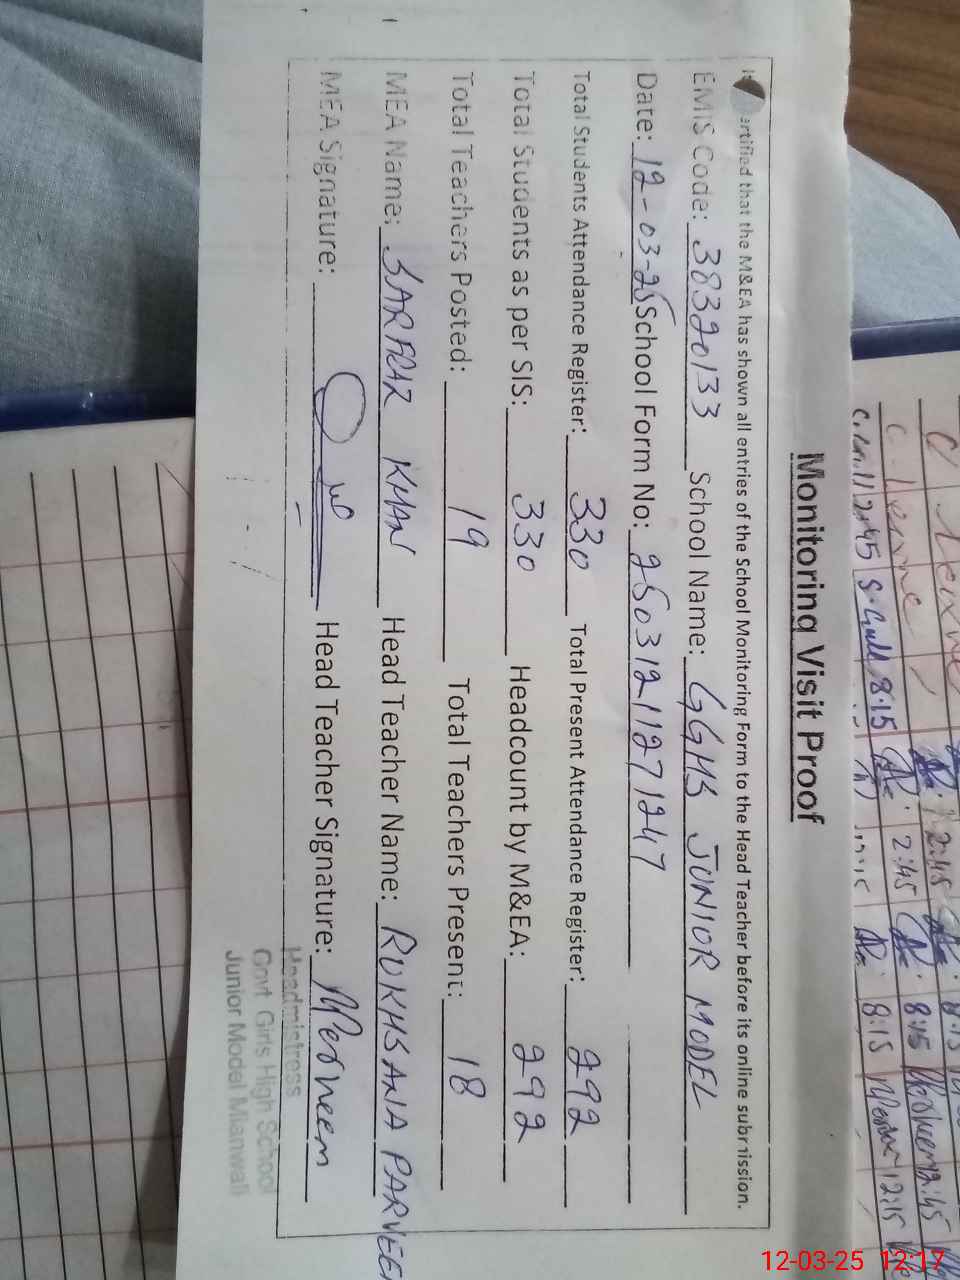 Monitoring Visit Proof
ertified that the M&EA has shown all entries of the School Monitoring Form to the Head Teacher before its online submission.
EMIS Code: 38320133 School Name: GGHS JUNIOR MODEL
Date: 12-03-25 School Form No: 25031211271247
Total Students Attendance Register: 330 Total Present Attendance Register: 292
Total Students as per SIS: 330 Headcount by M&EA: 292
Total Teachers Posted: 19 Total Teachers Present: 18
MEA Name: SARFRAZ KHAN Head Teacher Name: RUKHSANA PARVEEN
MEA Signature: Head Teacher Signature:
Headmistress
Govt. Girls High School
Junior Model Mianwali
2:45
8:15
2:45
8:15
12:45
8:15
8:15
12:15
12-03-25 12:17